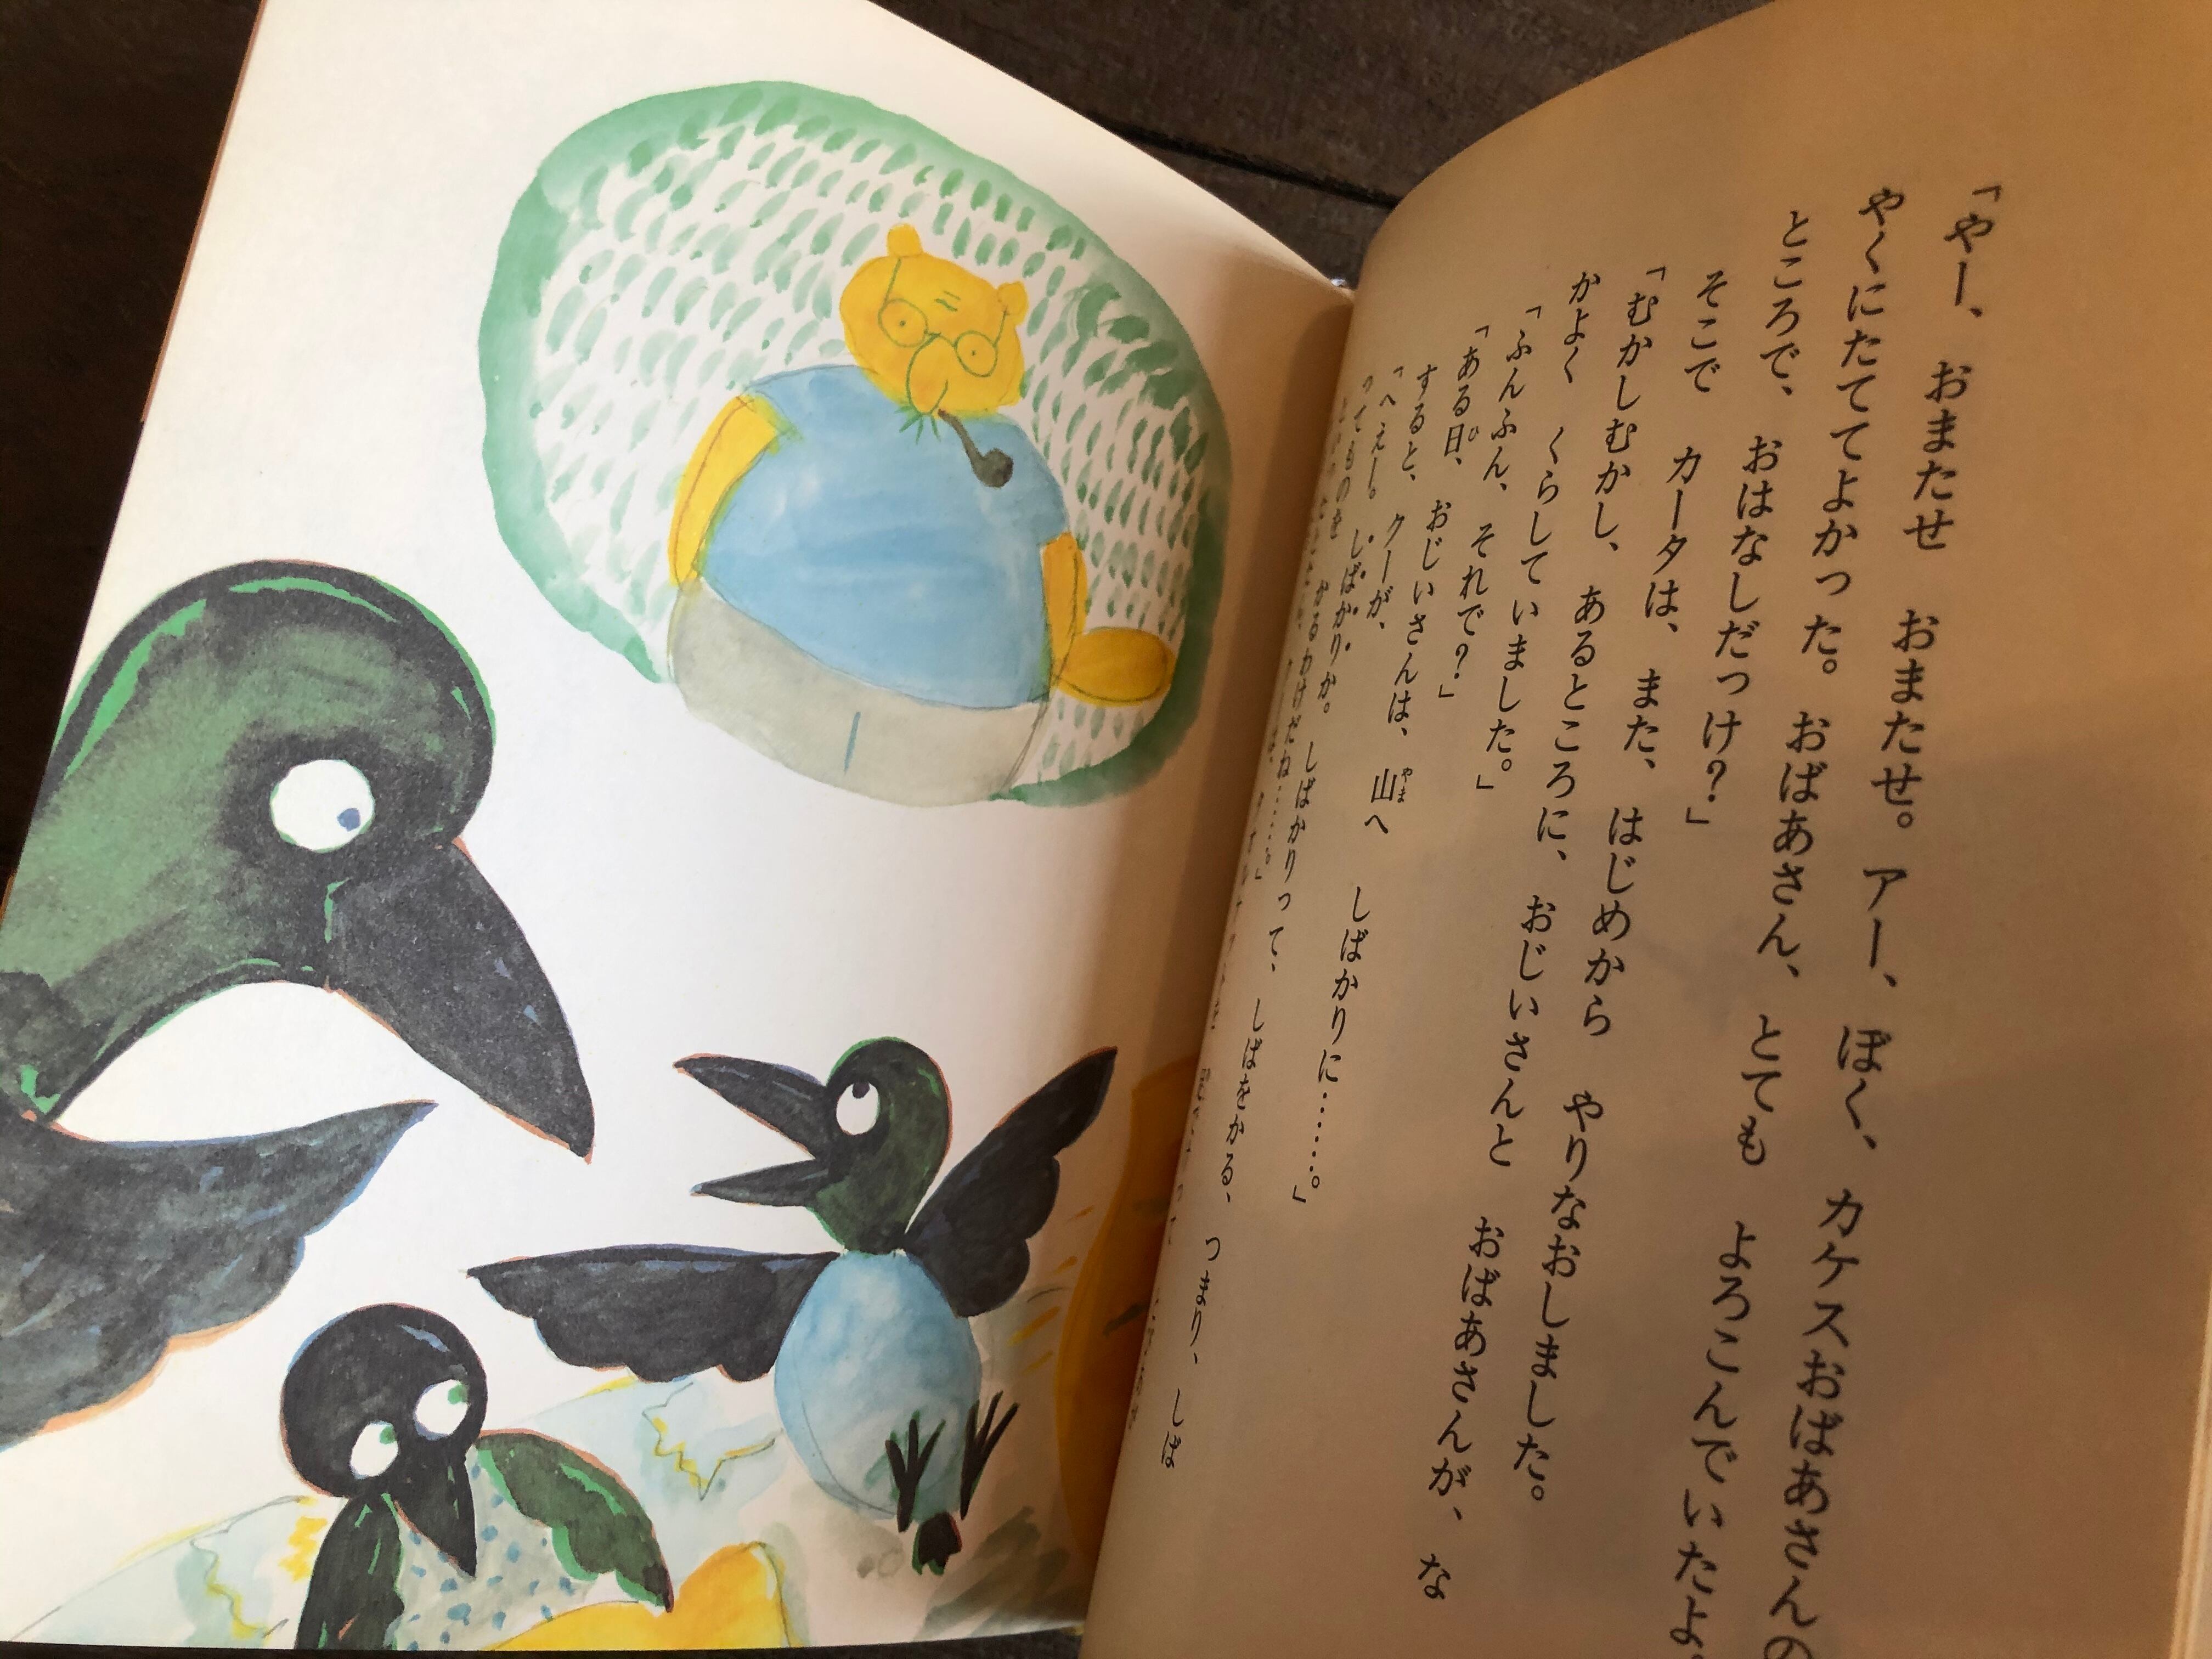 「やー、おまたせ　おまたせ。アー、ぼく、カケスおばあさんの
やくにたててよかった。おばあさん、とても　よろこんでいたよ。
ところで、おはなしだっけ？」
そこで　カータは、また、はじめから　やりなおしました。
「むかしむかし、あるところに、おじいさんと　おばあさんが、な
かよく　くらしていました。」
「ふんふん、それで？」
「ある日、おじいさんは、山へ　しばかりに……。」
すると、クーが、
「へえー。しばかりか。しばかりって、しばをかる、つまり、しは